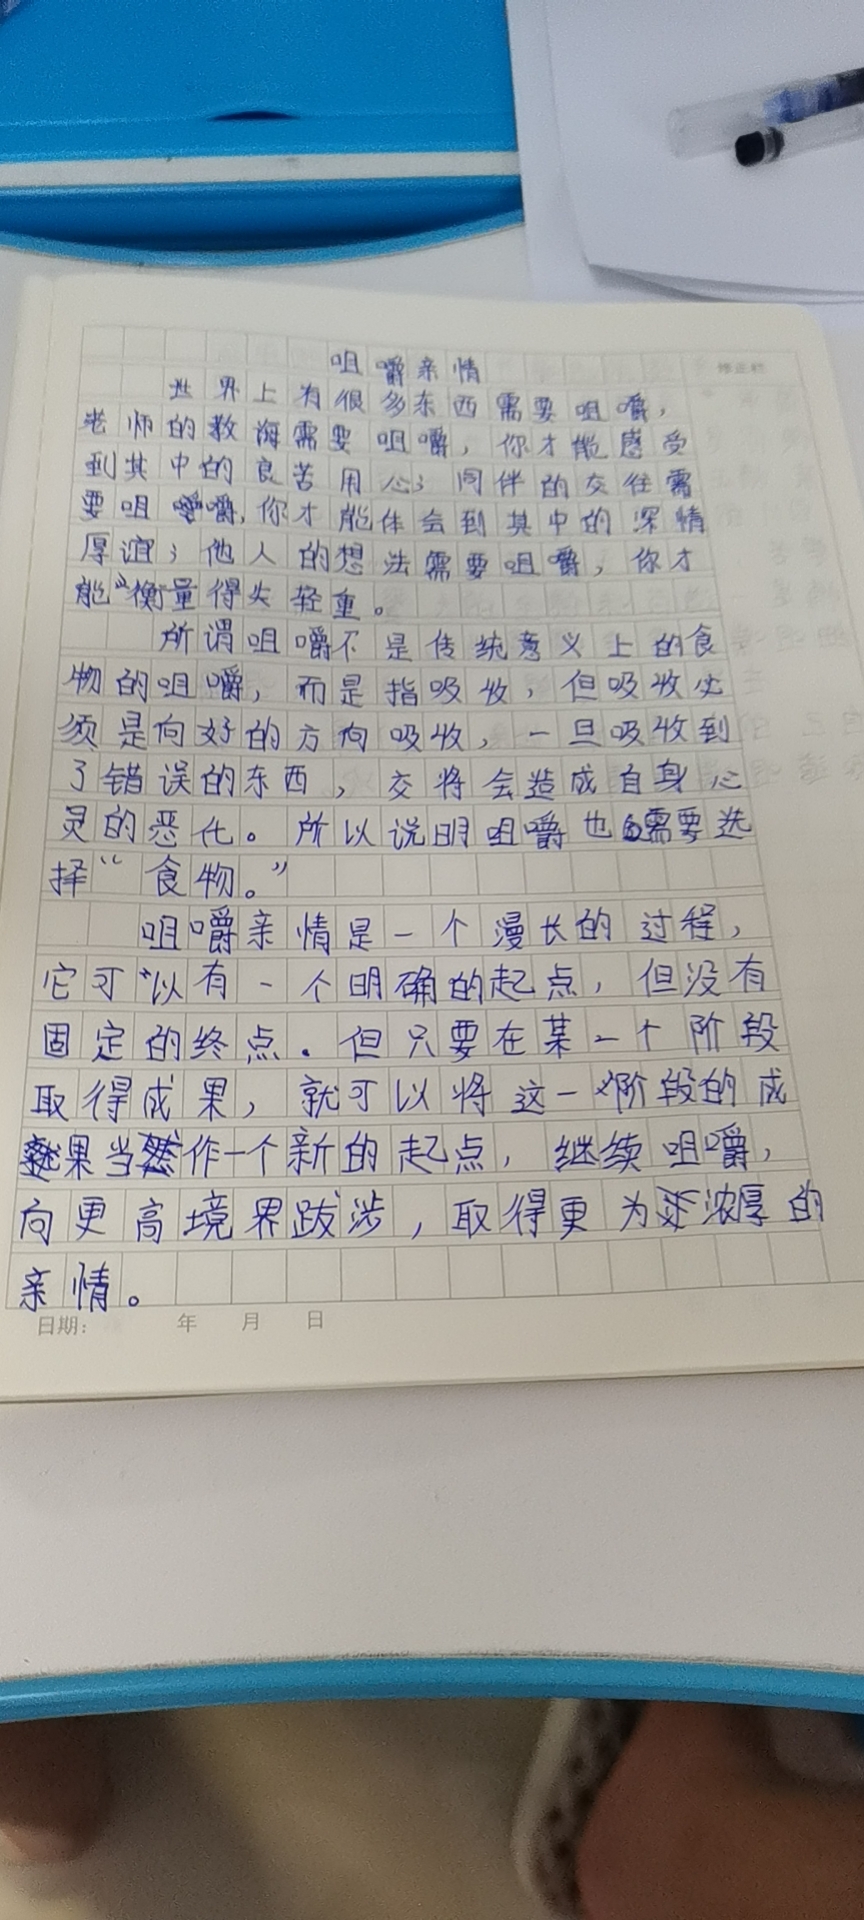 咀嚼亲情
世界上有很多东西需要咀嚼，
老师的教海需要咀嚼，你才能感受
到其中的良苦用心；同伴的交往需
要咀嚼，你才能体会到其中的深情
厚谊；他人的想法需要咀嚼，你才
能衡量得失轻重。
所谓咀嚼不是传统意义上的食
物的咀嚼，而是指吸收，但吸收必
须是向好的方向吸收，一旦吸收到
了错误的东西，交将会造成自身心
灵的恶化。所以说明咀嚼也需要选
择“食物。”
咀嚼亲情是一个漫长的过程，
它可以有一个明确的起点，但没有
固定的终点．但只要在某一个阶段
取得成果，就可以将这一阶段的成
果当作一个新的起点，继续咀嚼，
向更高境界跋涉，取得更为浓厚的
亲情。
日期： 年 月 日